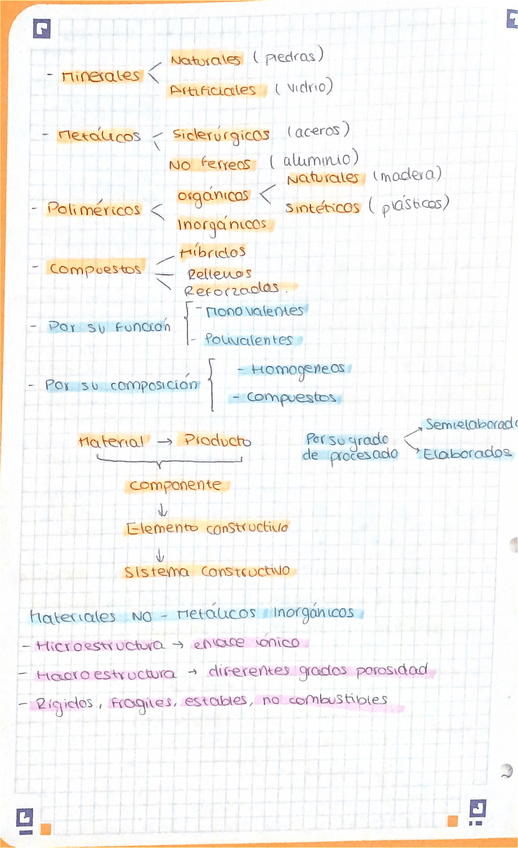 Naturales (piedras)
- Minerales <
Artificiales (vidrio)
- Metálicos < Siclerúrgicos (aceros)
No ferreos (aluminio)
Naturales (madera)
orgánicos <
- Poliméricos <
Sintéticos (plásticos)
Inorgánicos
Híbridos
- Compuestos
Rellenos
Reforzados.
- Monovalentes
- Por su función
- Polivalentes
- Homogeneos
- Por su composición
- Compuestos
Material → Producto
Por su grado de procesado
Semielaborado
Elaborados
Componente
↓
Elemento constructivo
↓
Sistema constructivo
Materiales NO - Metálicos Inorgánicos
- Microestructura → enlace iónico
- Macroestructura → diferentes grados porosidad
- Rígidos, Fragiles, estables, no combustibles